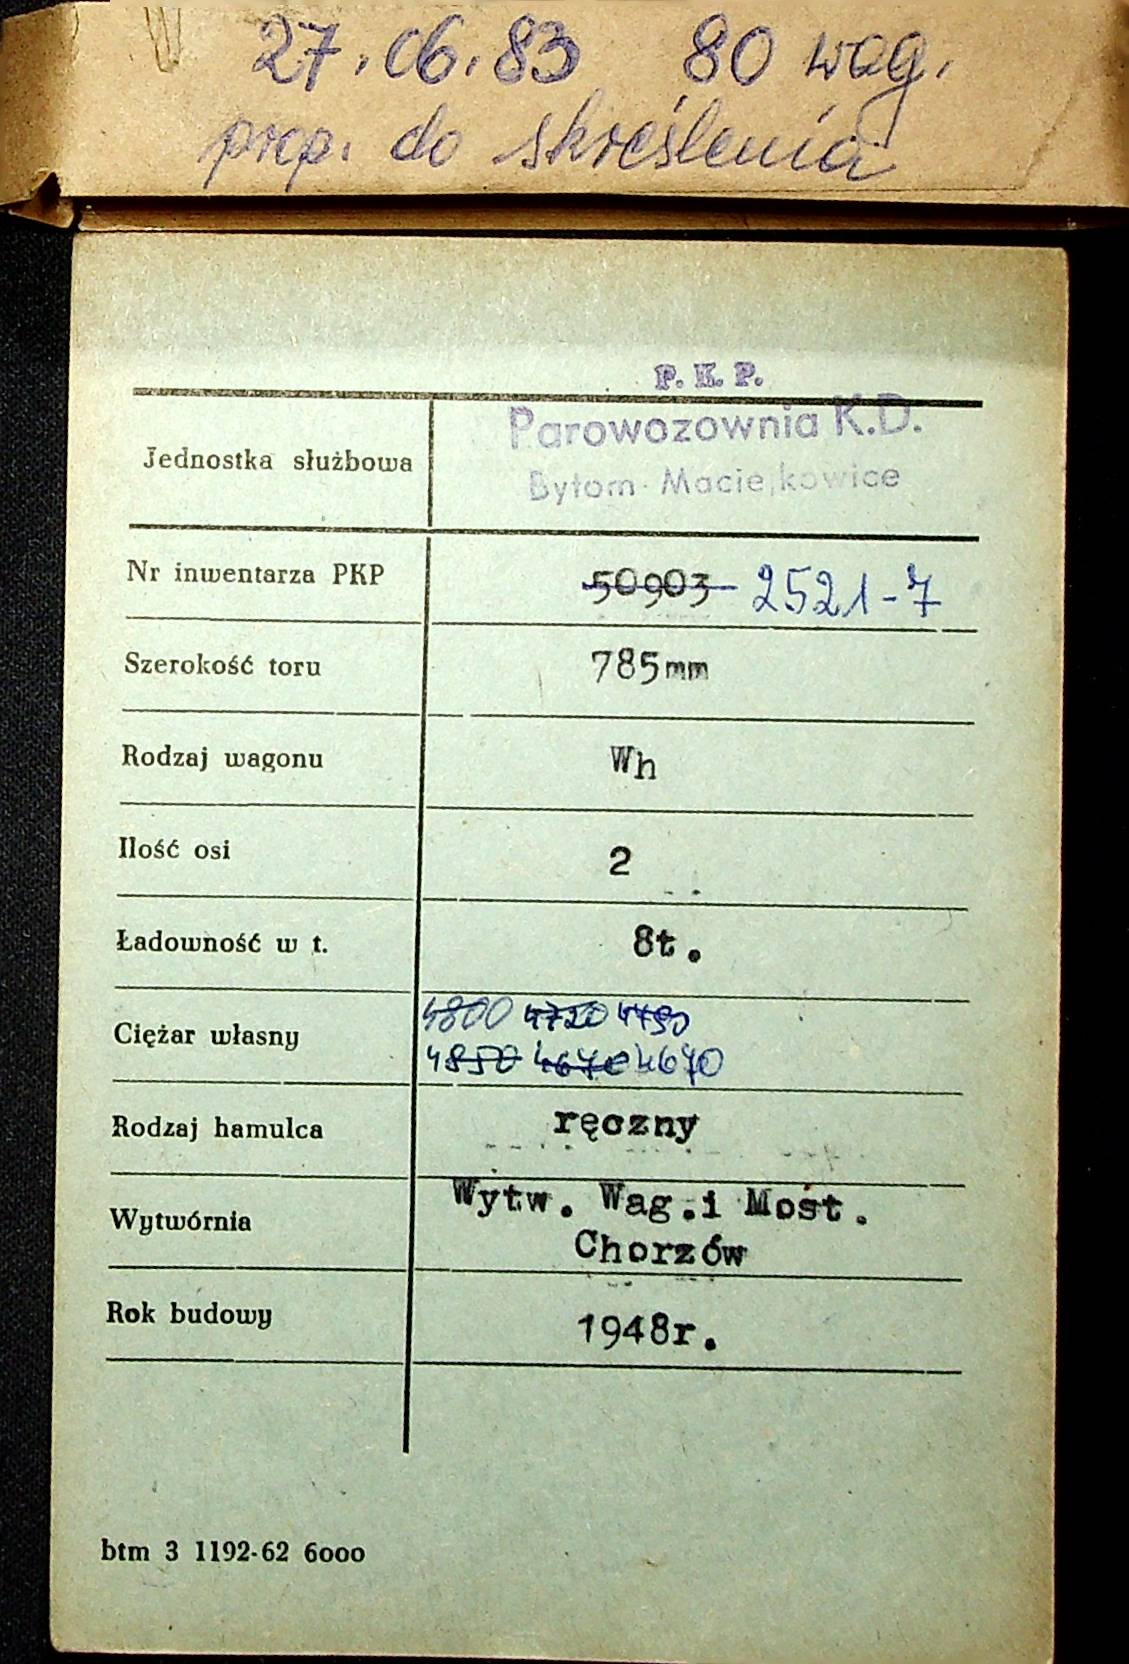 27.06.83 80 wag.
prop. do skreślenia
P. K. P.
Parowozownia K.D.
Bytom-Maciejkowice
Jednostka służbowa
Nr inwentarza PKP 50903 2521-7
Szerokość toru 785mm
Rodzaj wagonu Wh
Ilość osi 2
Ładowność w t. 8t.
4800 4720
Ciężar własny
4850 4670 4670
Rodzaj hamulca ręczny
Wytw. Wag.i Most.
Wytwórnia
Chorzów
Rok budowy 1948r.
btm 3 1192-62 6000